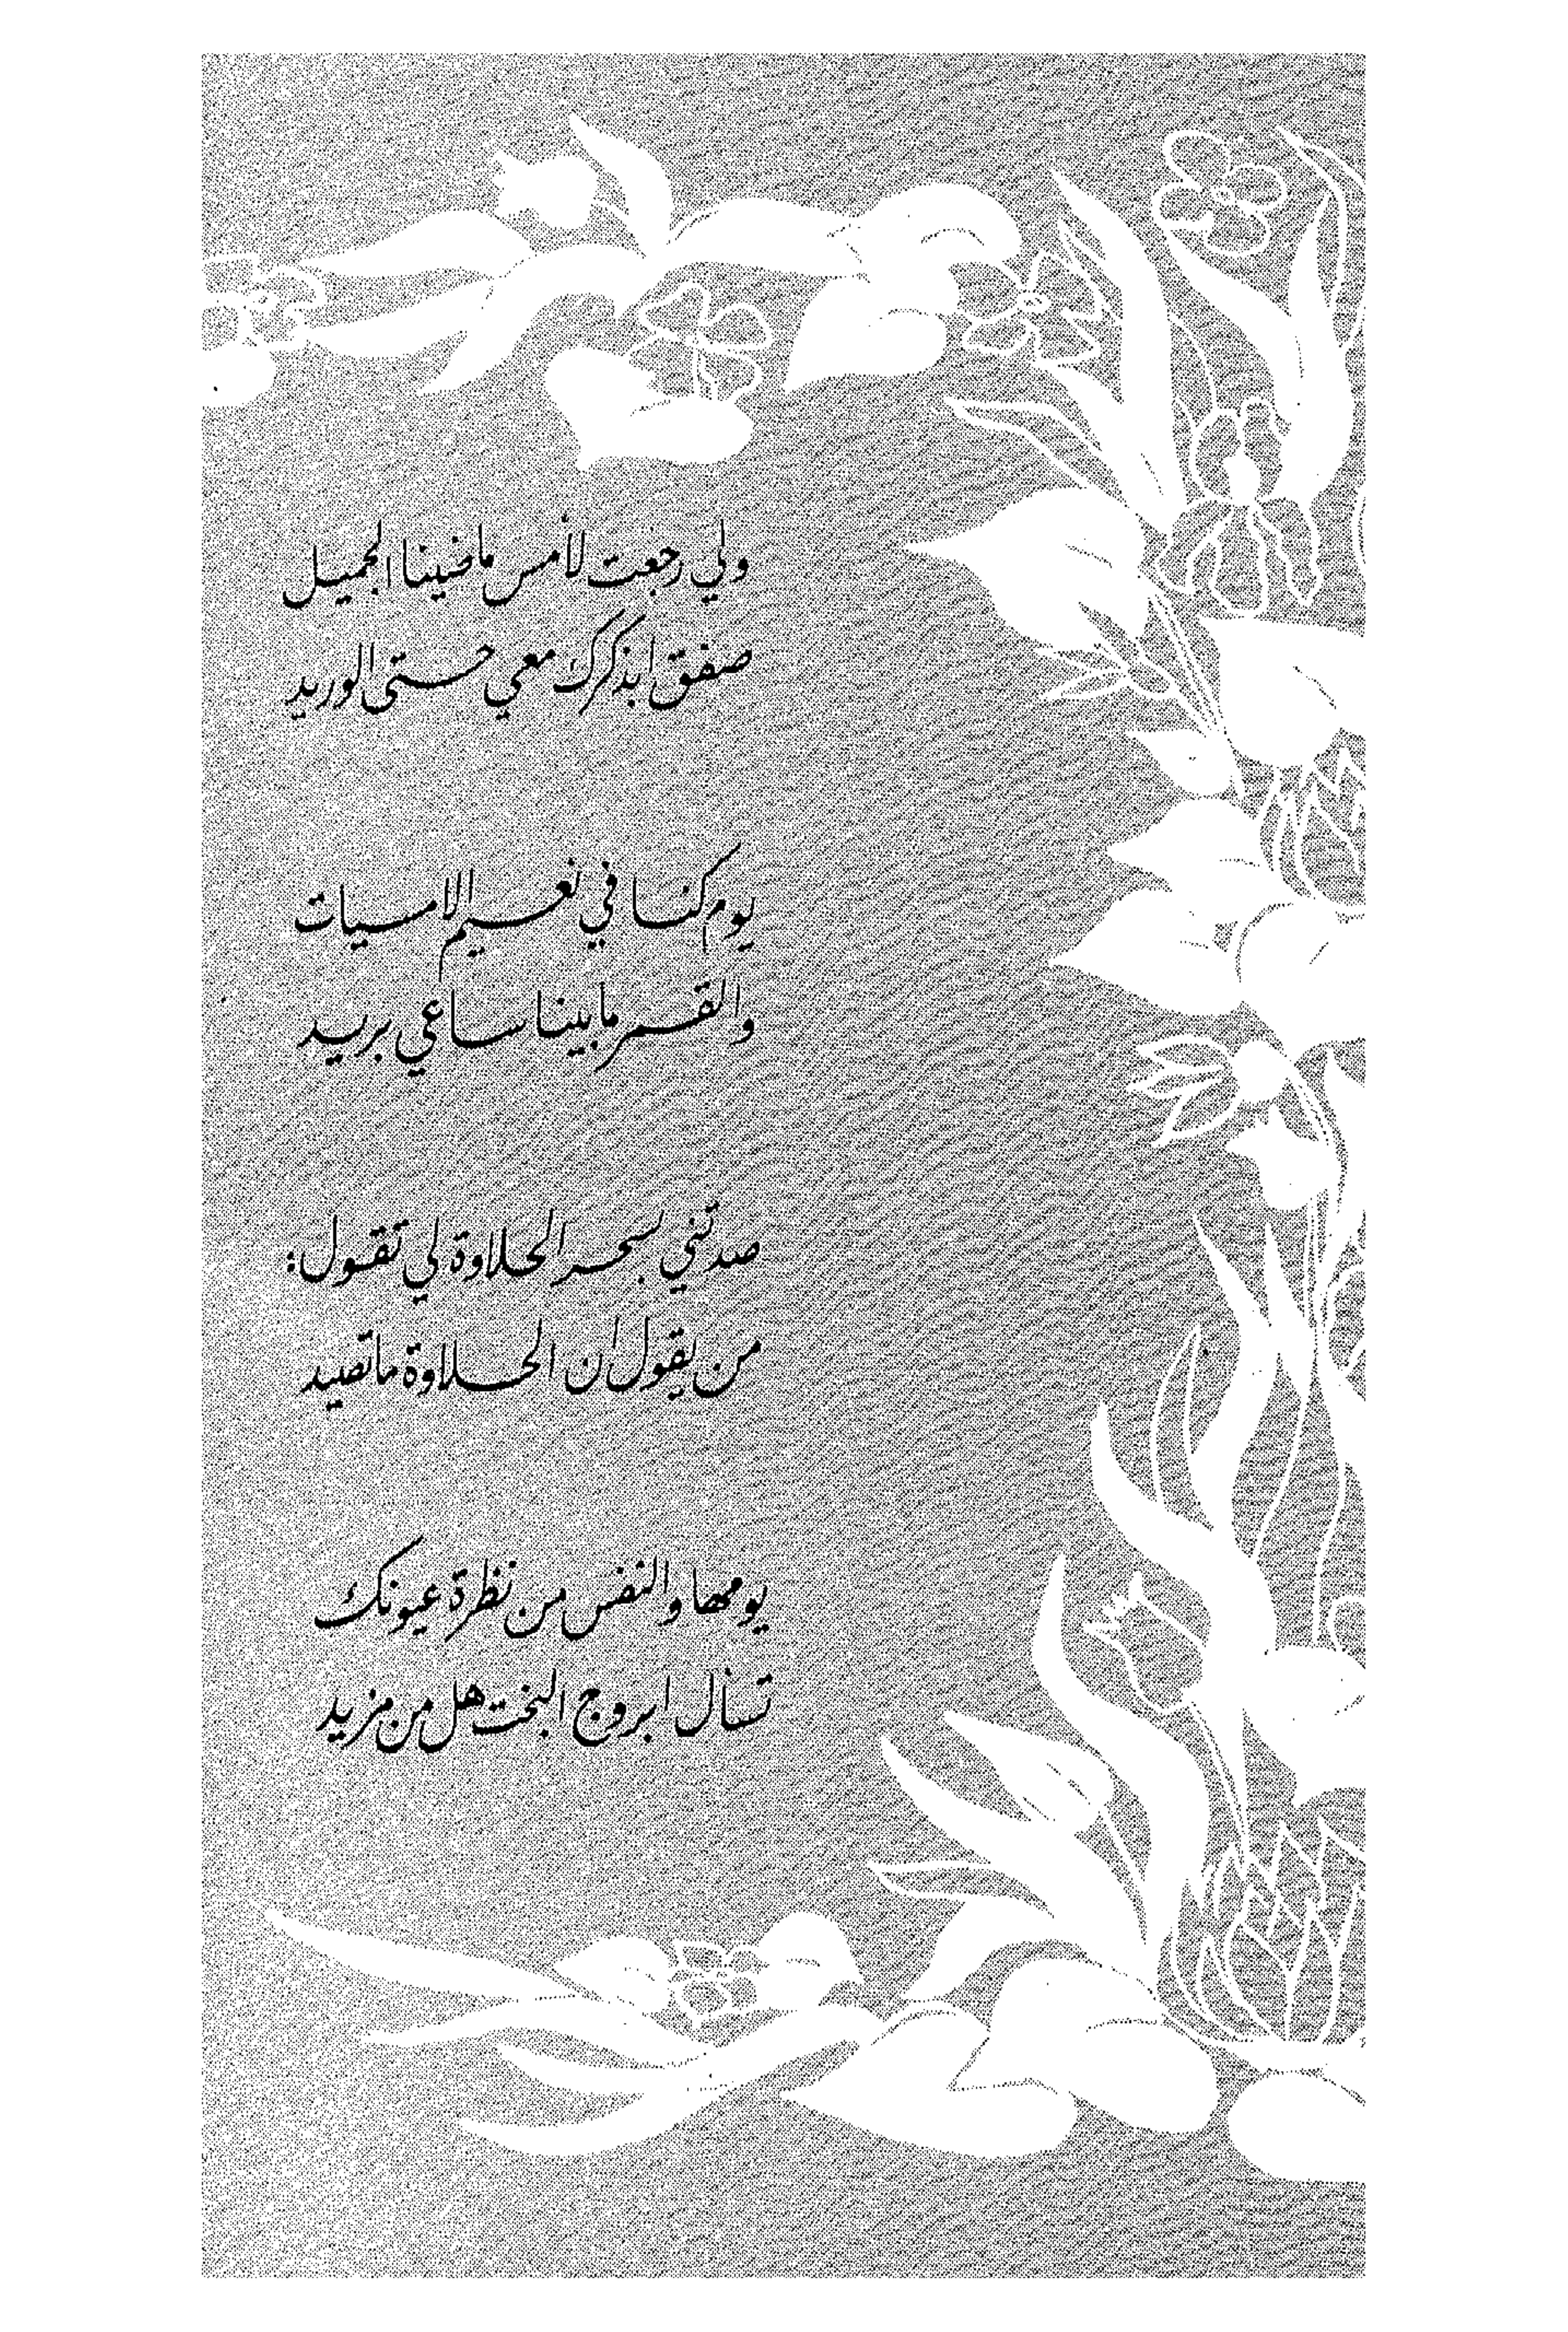 ولي رجعت لأمس ماضينا الجميل
صفق ابذكرك معي حتى الوريد
يوم كنا في نعيم الامسيات
والقمر ما بينا ساعي بريد
صدتني بسحر الحلاوة لي تقول:
من يقول ان الحلاوة ما تصيد
يومها والنفس من نظرة عيونك
تسأل ابروج البخت هل من مزيد